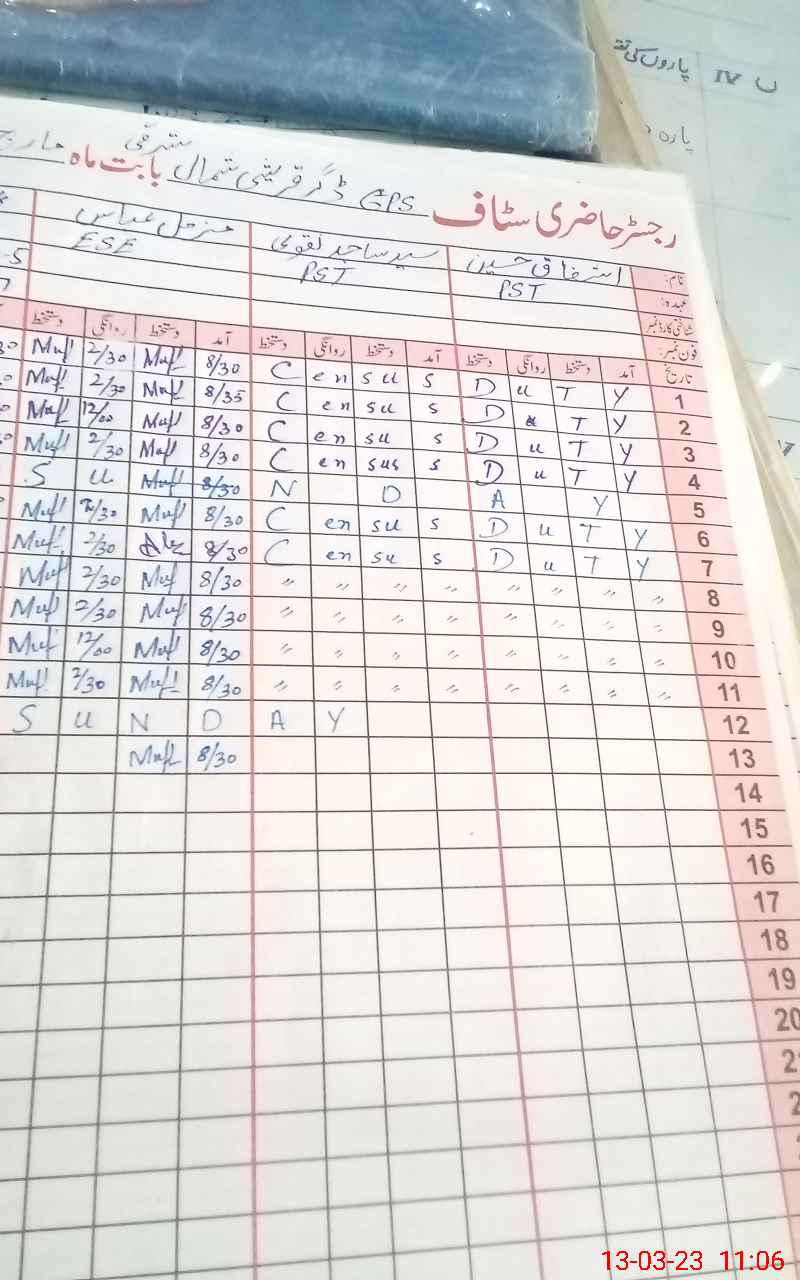 ں IV پاروں کی تق
پارہ
رجسٹر حاضری سٹاف GPS ڈگر قریشی شمال شرقی بابت ماہ مارچ
نام: اشفاق حسین سید ساجد نقوی مزمل عباس
عہدہ: PST PST ESE
شناختی کارڈ نمبر
فون نمبر:
تاریخ آمد دستخط روانگی دستخط آمد دستخط روانگی دستخط آمد دستخط روانگی دستخط
Muf 2/30 Muf 8/30 C en su s D u T Y 1
Muf 2/30 Muf 8/35 C en su s D u T Y 2
Muf 12/00 Muf 8/30 C en su s D u T Y 3
Muf 2/30 Muf 8/30 C en sus s D u T Y 4
S u Muf 8/30 N D A Y 5
Muf 2/30 Muf 8/30 C en su s D u T Y 6
Muf 2/30 8/30 C en su s D u T Y 7
Muf 2/30 Muf 8/30 " " " " " " " " 8
Muf 2/30 Muf 8/30 " " " " " " " " 9
Muf 12/00 Muf 8/30 " " " " " " " " 10
Muf 2/30 Muf 8/30 " " " " " " " " 11
S u N D A Y 12
Muf 8/30 13
14
15
16
17
18
19
20
2
2
13-03-23 11:06